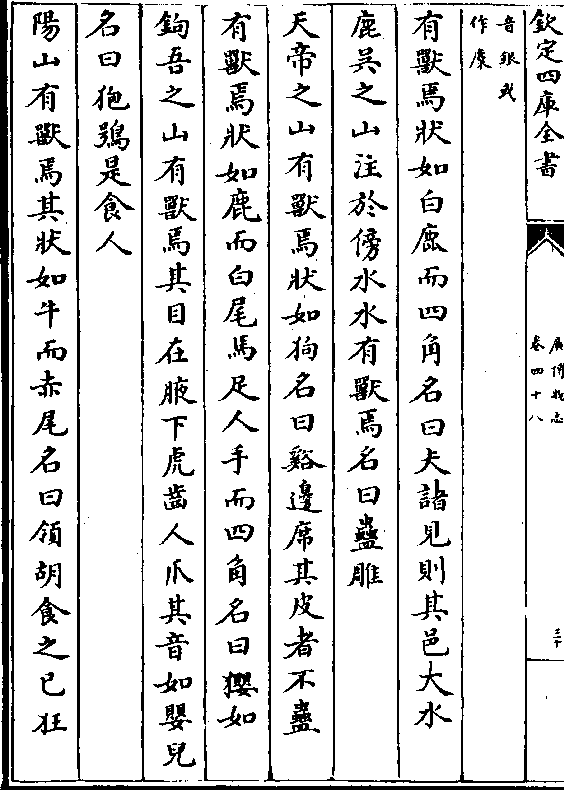 欽定四庫全書
廣博物志
卷四十八
三十
音銀或
作麇
有獸焉狀如白鹿而四角名曰夫諸見則其邑大水
鹿吳之山注於傍水水有獸焉名曰蠱雕
天帝之山有獸焉狀如狗名曰谿邊席其皮者不蠱
有獸焉狀如鹿而白尾馬足人手而四角名曰玃如
鉤吾之山有獸焉其目在腋下虎齒人爪其音如嬰兒
名曰狍鴞是食人
陽山有獸焉其狀如牛而赤尾名曰領胡食之已狂